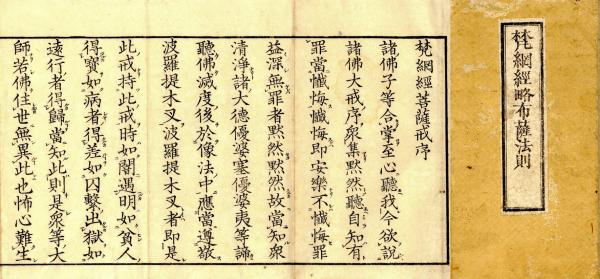 梵網經略布薩法則
梵網經菩薩戒序
諸佛子等合掌至心聽我今欲說
諸佛大戒序衆集黙然聽自知有
罪當懺悔懺悔即安樂不懺悔罪
益深無罪者黙然黙然故當知衆
清淨諸大德優婆塞優婆夷等諦
聽佛滅度後於像法中應當遵敬
波羅提木叉波羅提木叉者即是
此戒持此戒時如闇遇明如貧人
得寶如病者得差如囚繫出獄如
遠行者得歸當知此則是衆等大
師若佛住世無異此也怖心難生